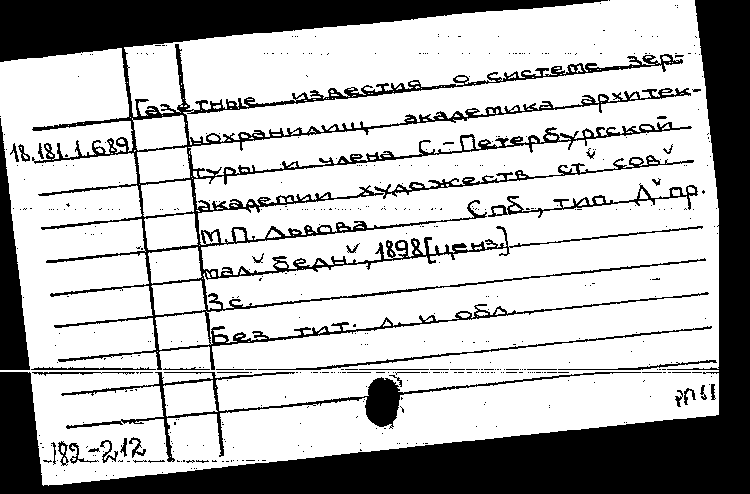 Газетные известия о системе зер-
18.181.1.689 нохранилищ академика архитек-
туры и члена С.-Петербургской
академии художеств ст.ˇ сов.ˇ
М.П. Львова. Спб., тип. Дˇ пр.
мал.ˇ бедн.ˇ, 1898 [ценз.].
3 с.
Без тит. л. и обл.
182-212